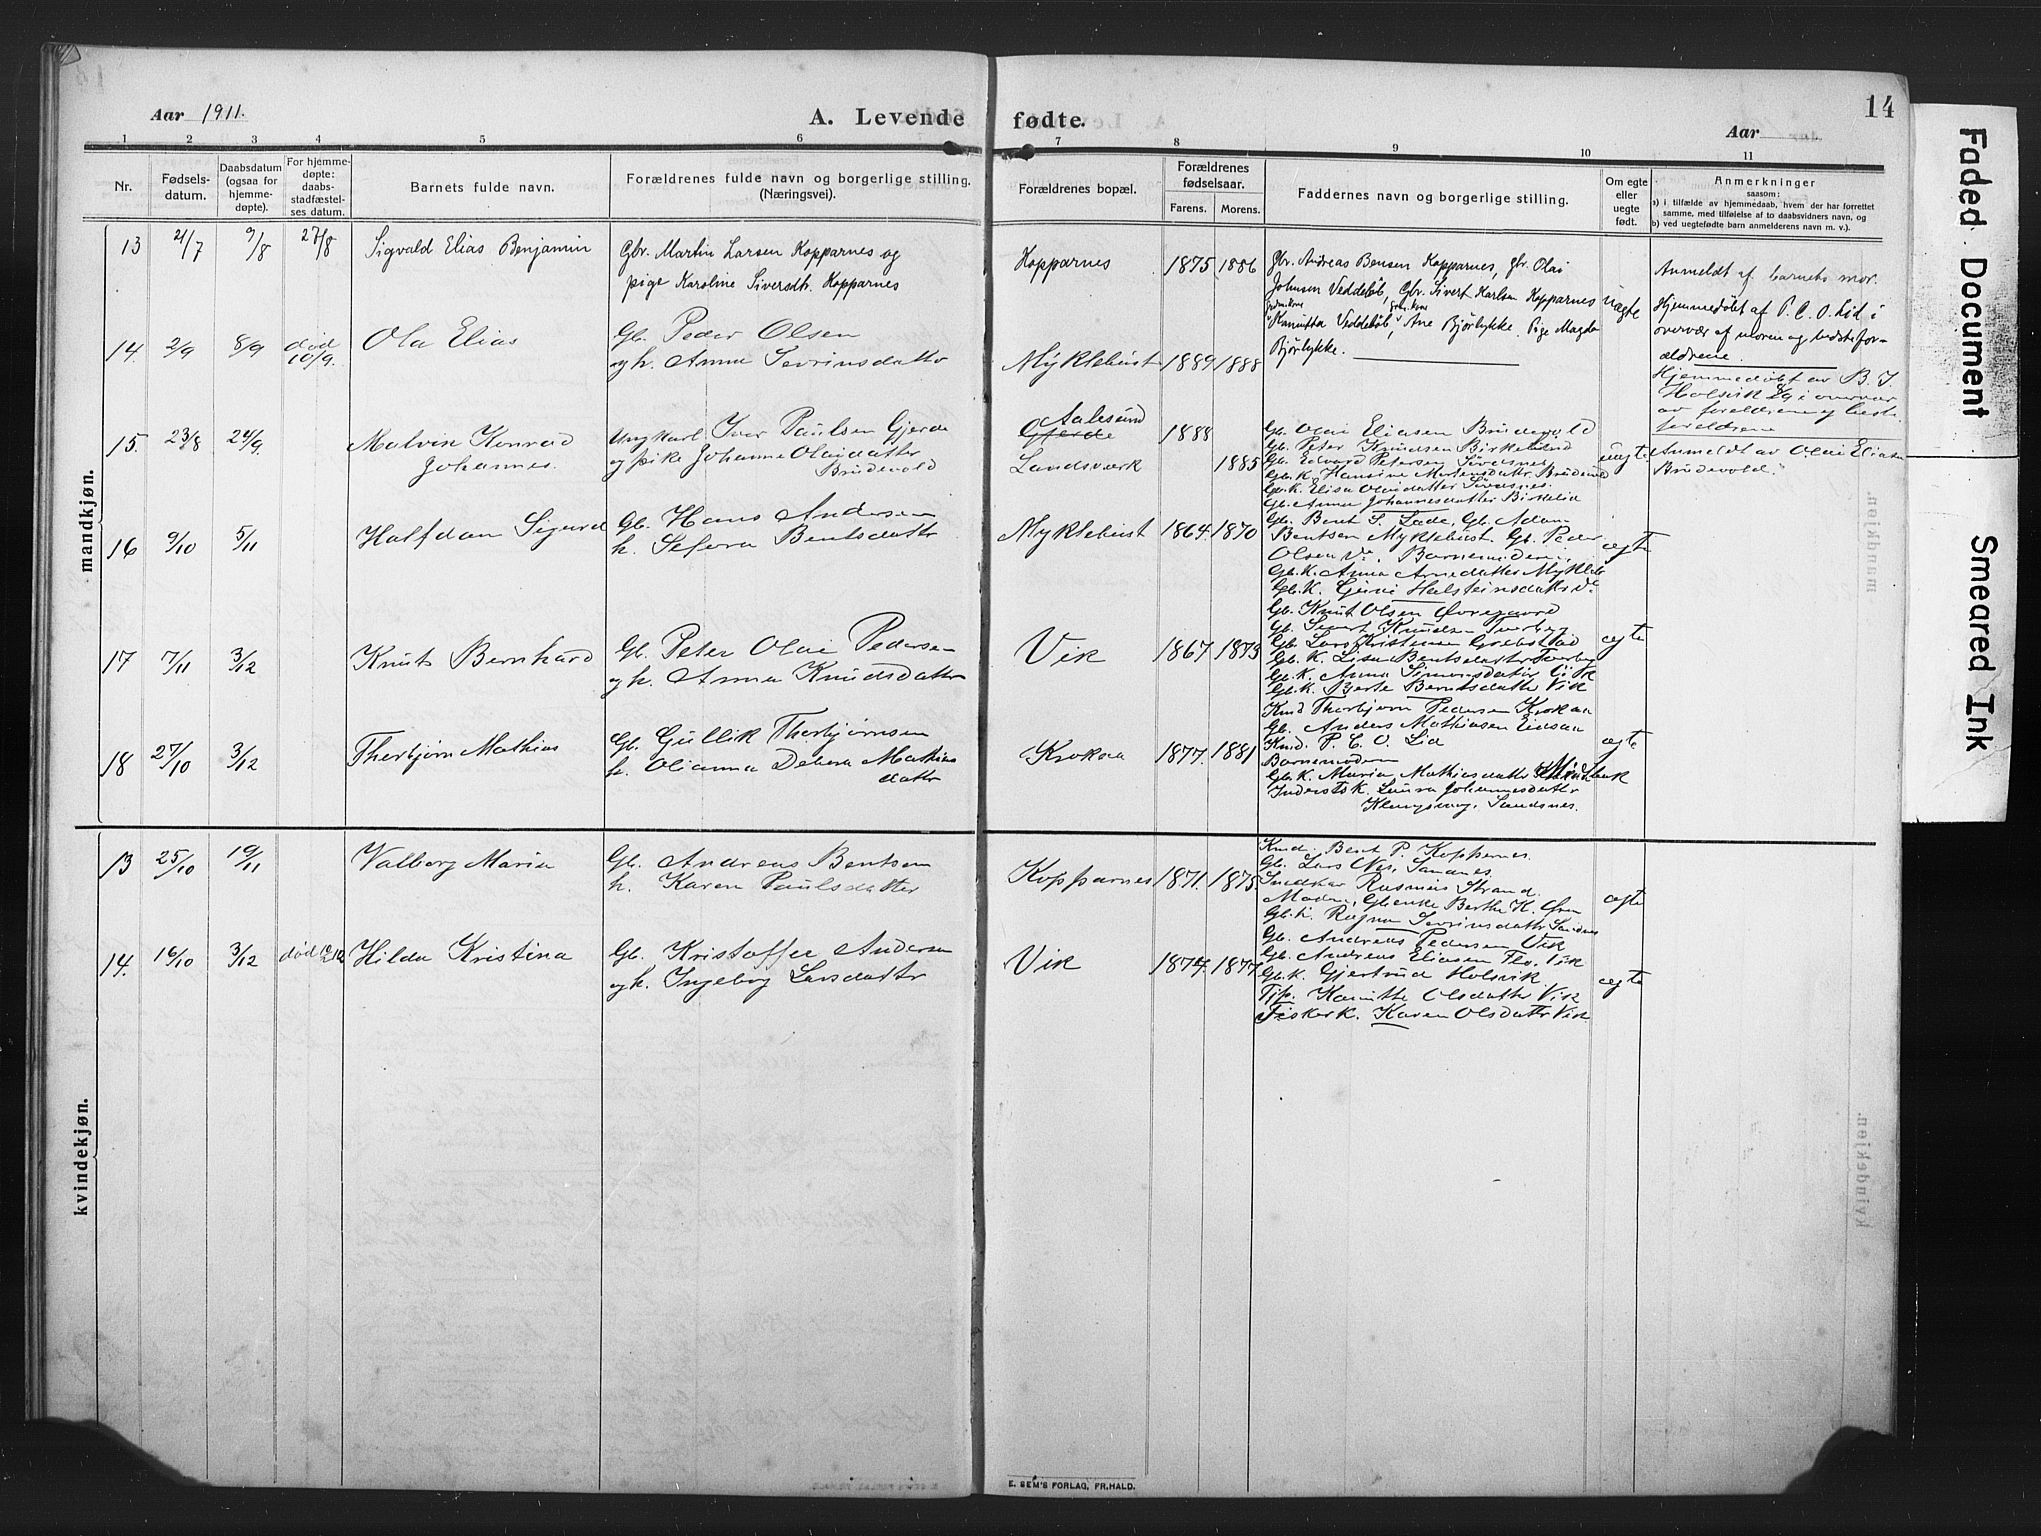 Aar 1911.
A. Levende fødte.
Aar
14
1 2 3 4 5 6 7 8 9 10 11
Nr.
Fødsels-
datum.
Daabsdatum
(ogsaa for
hjemme-
døpte).
For hjemme-
døpte:
daabs-
stadfæstel-
ses datum.
Barnets fulde navn.
Forældrenes fulde navn og borgerlige stilling.
(Næringsvei).
Forældrenes bopæl.
Forældrenes
fødselsaar.
Farens. Morens.
Faddernes navn og borgerlige stilling.
Om egte
eller
uegte
født.
Anmerkninger
saasom:
a) i tilfælde av hjemmedaab, hvem der har forrettet
samme, med tilføielse af to daabsvidners navn, og
b) ved uegtefødte barn anmelderens navn m. v.).
mandkjøn.
13 21/7 9/8 27/8 Sigvald Elias Benjamin
Gbr. Martin Larsen Kopparnes og
pige Karoline Siversdtr. Kopparnes
Kopparnes 1875 1886
Gbr. Andreas Bensen Kopparnes, gbr. Olai
Johnsen Veddeløb, Gbr. Sivert Karlsen Kopparnes
Kanutta Veddeløb, Ane Bjørlykke. Pige Magda
Bjørlykke.
uegte
Anmeldt af barnets mor.
Hjemmedøbt af P. C. O. Lid i
overvær af moren og bedstefor-
ældrene.
14. 2/9 8/9 død
10/9.
Ola Elias
Gb. Peder Olsen
og h. Anna Severinsdatter
Myklebust 1889 1888
Hjemmedøbt av B. J.
Holsvik 8/9 i overvær
av foreldrene og beste-
foreldrene
15. 23/8 24/9.
Malvin Konrad
Johannes.
Ungkarl Iver Paulsen Gjerde
og pike Johanne Olaidatter
Brudevold
Aalesund
Gjerde
Landsværk
1888
1885
Gb. Olai Eliasen Brudevold
Gb. Peter Knudsen Birkelund
Gb. Edvard Petersen Sørdsnes
Gb. K. Hansine Mortensdatter Brudevold
Gb. K. Elisa Olaidatter Sørdsnes.
Gb. Anna Johannesdatter Birkelid
uegte.
Anmeldt av Olai Eliasen
Brudevold.
16 9/10 5/11
Halfdan Sigurd
Gb. Hans Andersen
h. Sefora Bentsdattr
Myklebust 1864. 1870
Gb. Bent S. Lade, Gb. Adam
Bentsen Myklebust. Gb. Peder
Olsen Barnemoderen,
Gb. K. Anna Arnedatter Mykleb.
Gb. K. Halsteinsdatter
egte
17 7/11 3/12
Knut Bernhard
Gb. Peter Olai Pedersen
og h. Anna Knudsdattr
Vik 1867 1873
Gb. Knut Olsen Øvregaard
Gb. Sivert Knudsen
Gb. Lars Kristensen
Gb. K. Lisa Bentsdatter
Gb. K. Anna Simonsdatter Vik
Gb. K. Berte Berntsdatter Vik
egte
18 27/10 3/12
Thorbjørn Mathias
Gb. Gullik Thorbjørnsen
h. Olianna Debora Mathias
dattr
Krokaa 1877. 1881
Knd Thorbjørn Pedersen Krokaa
Gb. Anders Mathiasen Eidsaa
Knd. P. C. O. Lid
Barnemoderen
Gb. K. Maria Mathiasdatter
Inderstsk. Laura Johannesdattr
Sandsnes.
egte
kvindekjøn.
13 25/10 19/11
Valborg Maria
Gb. Andreas Bentsen
h. Karen Paulsdatter
Kopparnes 1871. 1875.
Knd. Bent P. Koppernes.
Gb. Lars Nes, Sandnes.
Snedker Rasmus Strand.
Moderen, Gbenke Berthe K. Øren
Gb. K. Ragna Severinsdatter Sandnes
egte
14. 16/10 3/12 død
Hilda Kristina
Gb. Kristoffer Andersen
og h. Ingeborg Larsdattr
Vik 1877. 1877.
Gb. Andreas Pedersen Vik
Gb. Andreas Eliasen Flo. Vik
Gb. K. Gjertrud Holsvik
Tjp. Kanutte Olsdatter Vik
Fiskerk. Karen Olsdattr Vik
egte
E. SEM'S FORLAG, FR.HALD.
Faded Document
Smeared Ink